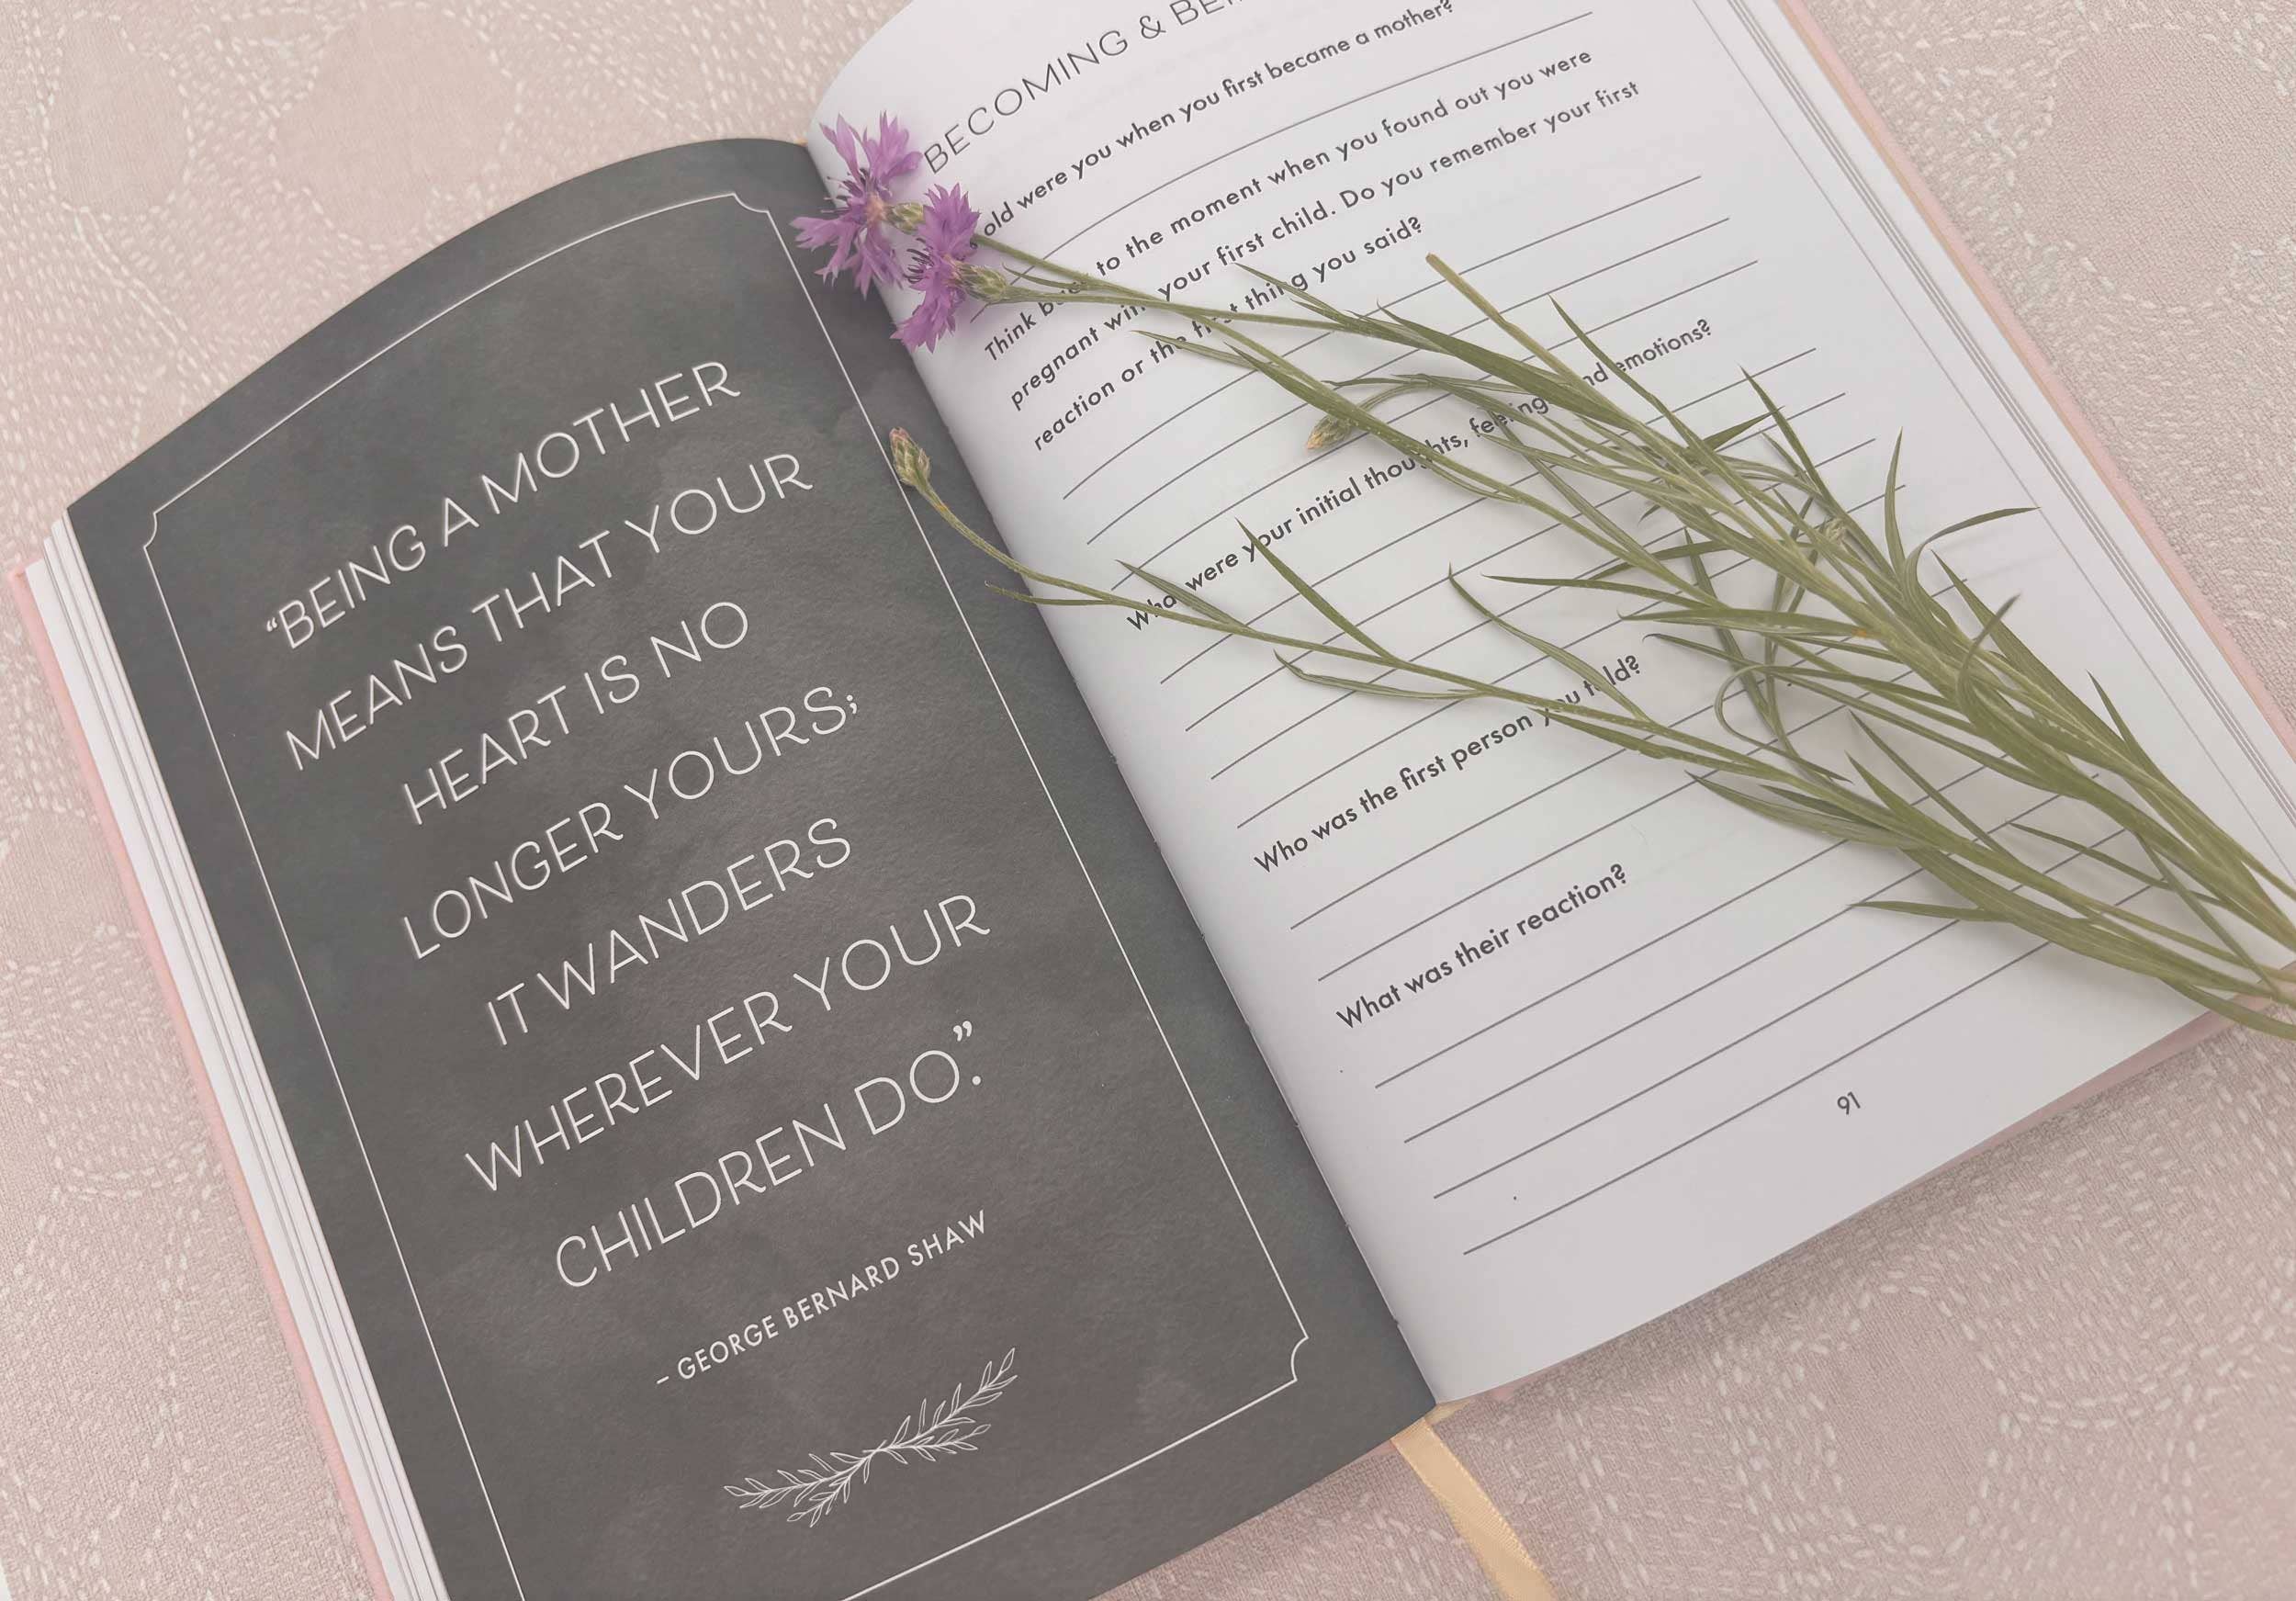 “BEING A MOTHER
MEANS THAT YOUR
HEART IS NO
LONGER YOURS;
IT WANDERS
WHEREVER YOUR
CHILDREN DO.”
- GEORGE BERNARD SHAW
BECOMING &
old were you when you first became a mother?
Think back to the moment when you found out you were
pregnant with your first child. Do you remember your first
reaction or the first thing you said?
What were your initial thoughts, feelings and emotions?
Who was the first person you told?
What was their reaction?
91